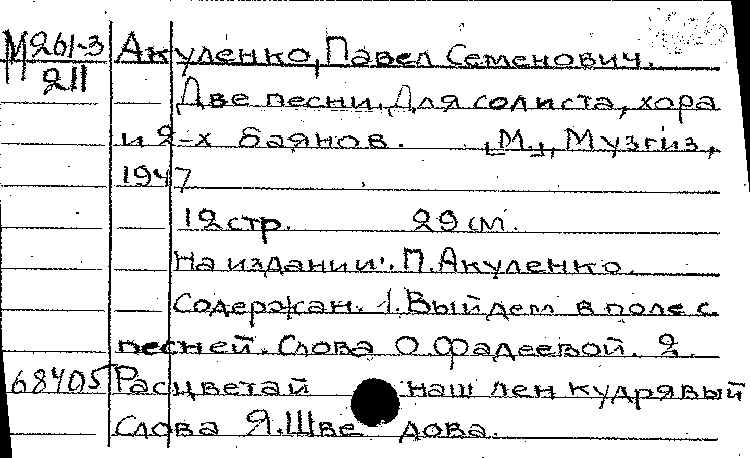 М261-3 Акуленко, Павел Семенович.
211
Две песни. Для солиста, хора
и 2-х баянов. [М.], Музгиз,
1947
12 стр. 29 см.
На издании: П. Акуленко.
Содержан. 1. Выйдем в поле с
песней. Слова О. Фадеевой. 2.
68405 Расцветай наш лен кудрявый
Слова Я. Шведова.